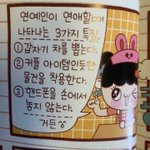 연예인이 연애할때
나타나는 3가지 특징.
①갑자기 차를 뽑는다.
②커플 아이템인듯한
물건을 착용한다.
③핸드폰을 손에서
놓지 않는다.
거든요